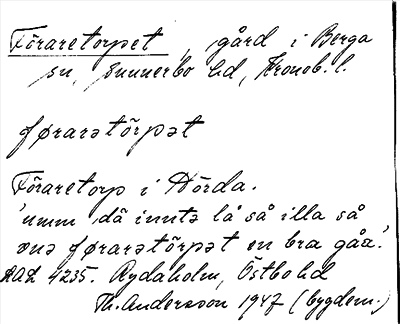 Föraretorpet, gård i Berga
sn, Sunnerbo hd, Kronob. l.
førarətõrpət
Föraretorp i Dörda.
'umm dä inntə lå så illa så
va førarətõrpət en bra gåa.'
AAL 4235. Rydaholm, Östbo hd
Th. Andersson 1947 (bygdem.)